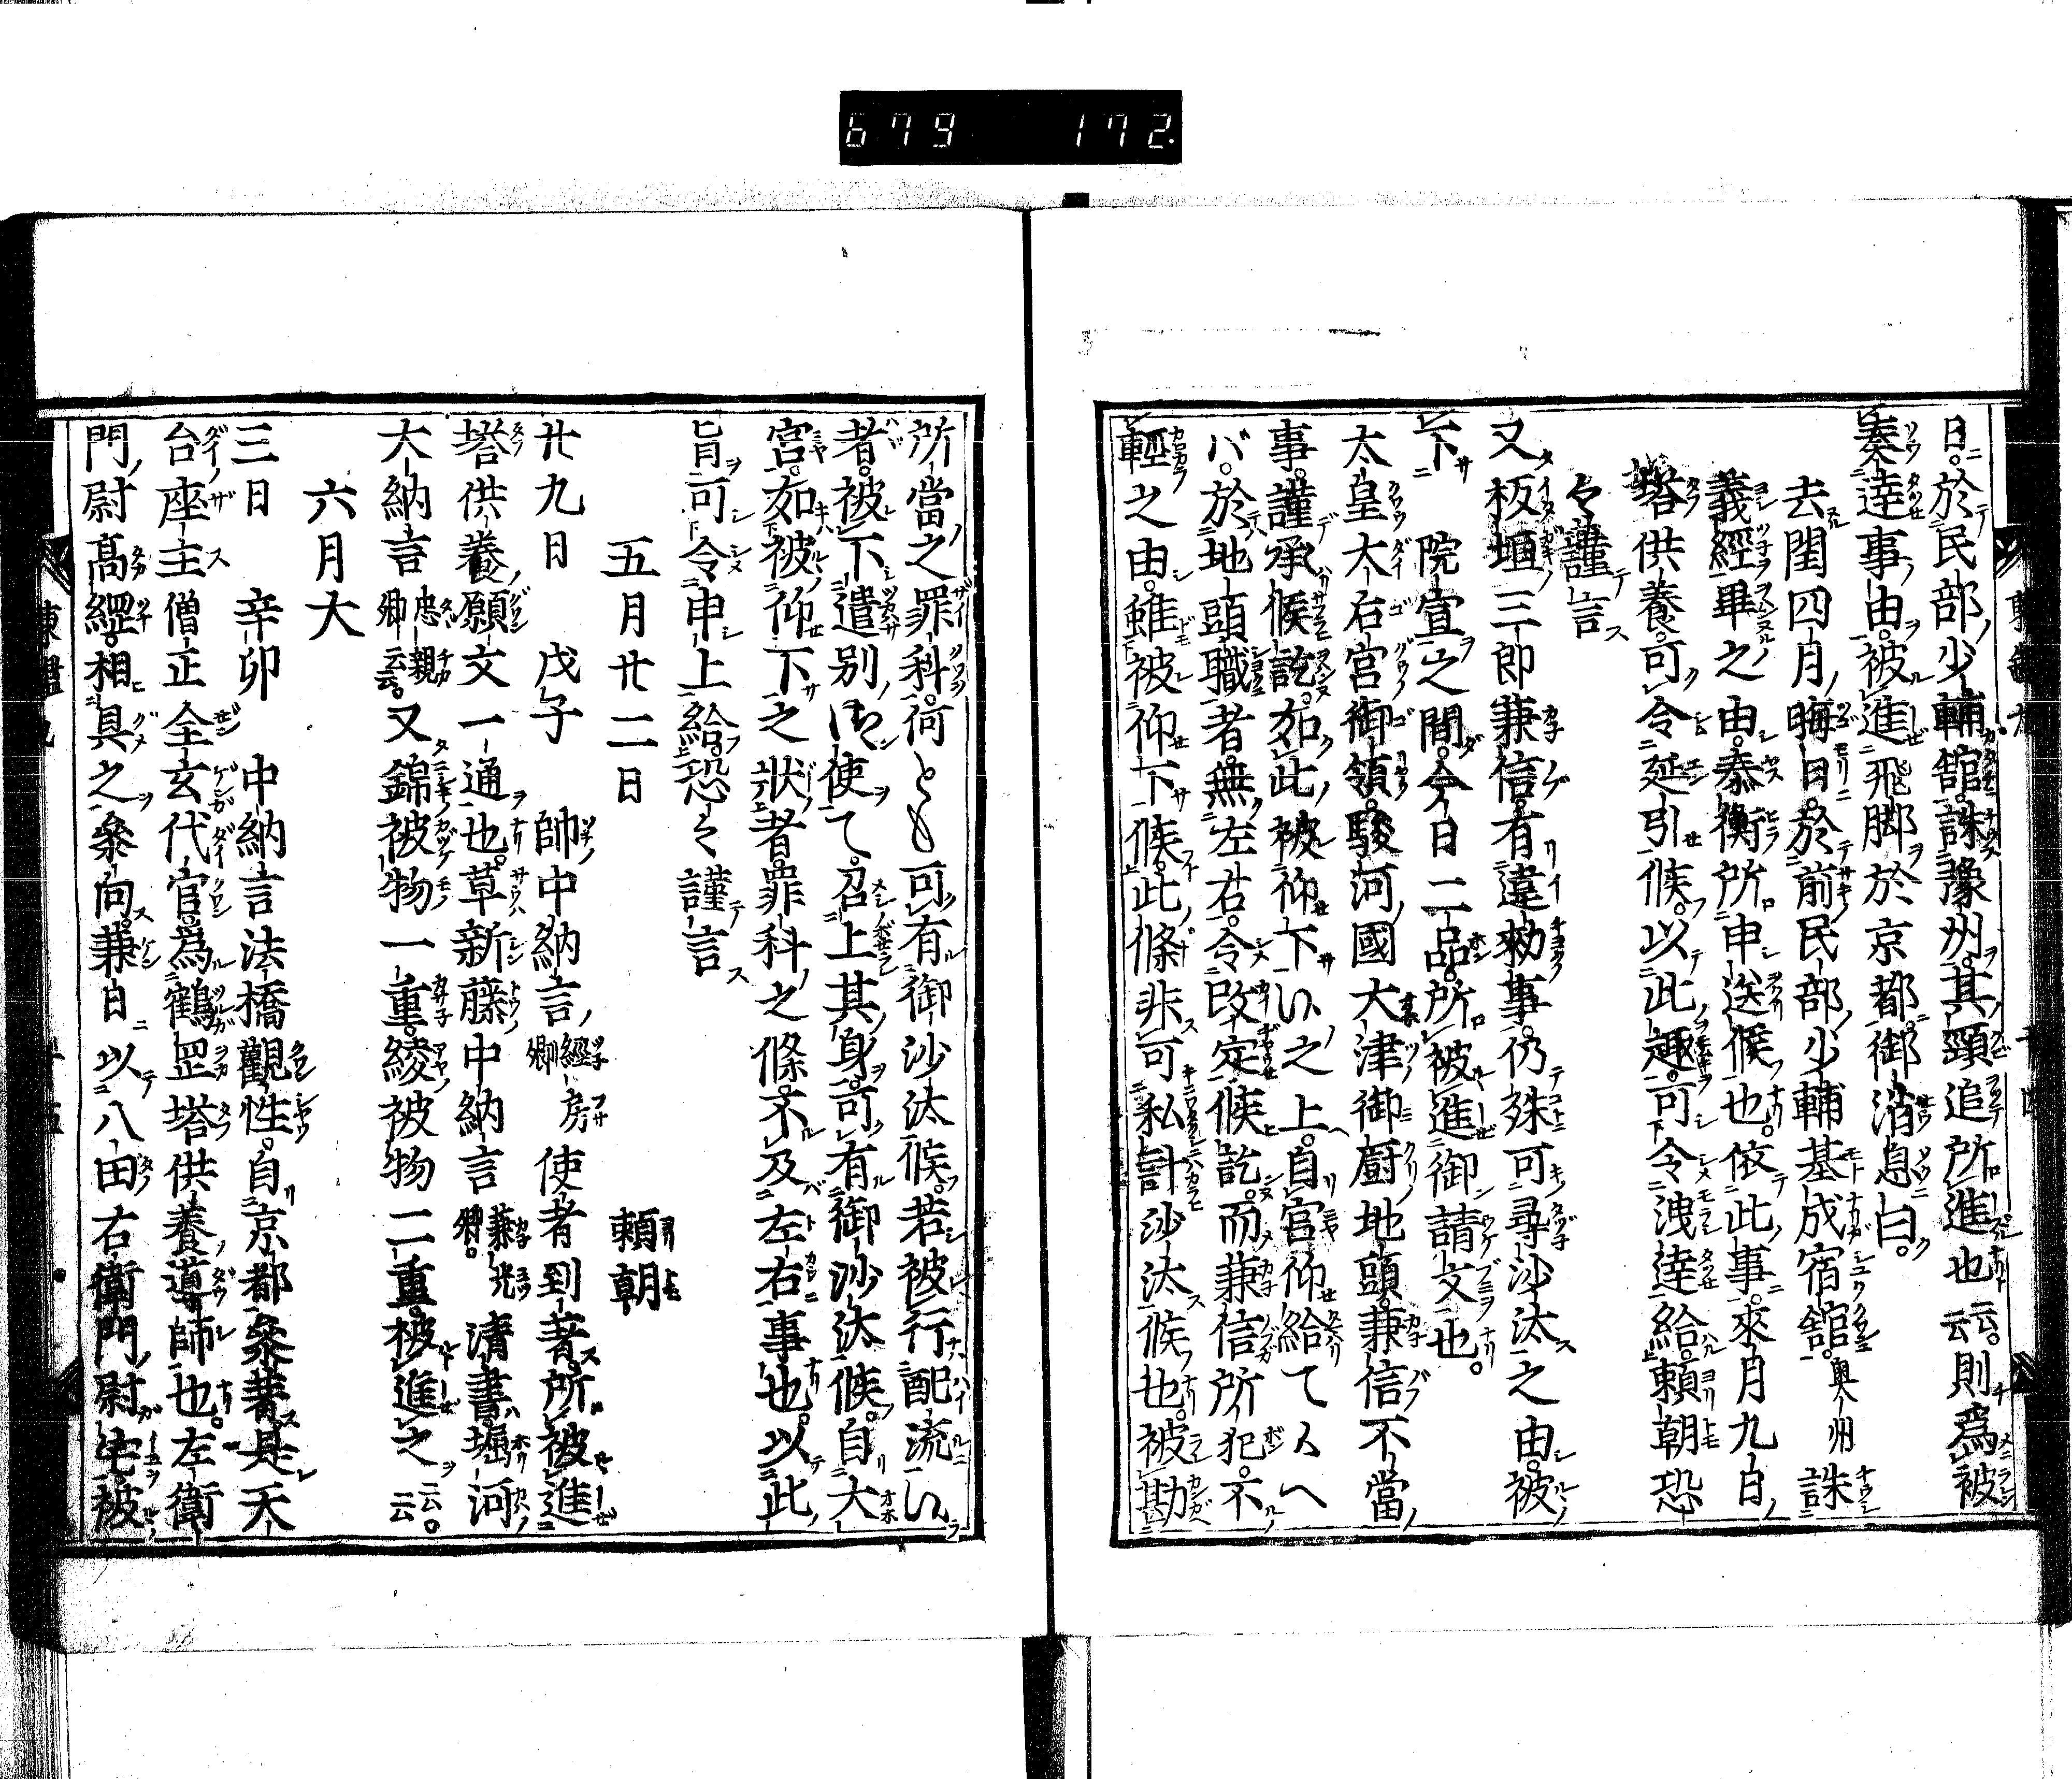 679 172
日。於民部少輔舘。誅豫州。其頸追所進也云云。則爲被
奏達事由。被進飛脚於京都。御消息曰。
去閏四月晦日。於前民部少輔基成宿舘。奥州誅
義經畢之由。泰衡所申送候也。依此事。來月九日
塔供養。可令延引候。以此趣。可令洩達給。頼朝恐
々謹言
又板垣三郎兼信。有違勅事。仍殊可尋沙汰之由。被
下 院宣之間。今日二品。所被進御請文也。
太皇太后宮御領。駿河國大津御厨地頭。兼信不當
事。謹承候訖。如此被仰下候之上。自宮仰給て候へ
バ。於地頭職者。無左右。令改定候訖。而兼信所犯。不
輕之由。雖被仰下候。此條非可私計沙汰候也。被勘
所當之罪科。何とも可有御沙汰候。若被行配流候
者。被下遣別御使て。召上其身。可有御沙汰候。自大
宮。如被仰下之状者。罪科之條。不及左右事也。以此
旨可令申上給。恐々謹言
五月廿二日 頼朝
廿九日 戊子 帥中納言 經房卿 使者到著。所被進
塔供養願文一通也。草新藤中納言 兼光卿。 清書。堀河
大納言 忠親卿云云。 又錦被物一重。綾被物二重。被進之云云。
六月大
三日 辛卯 中納言法橋觀性。自京都參著。是天
台座主僧正全玄代官。爲鶴岡塔供養導師也。左衛
門尉高經。相具之參向。兼日以八田右衛門尉宅。被